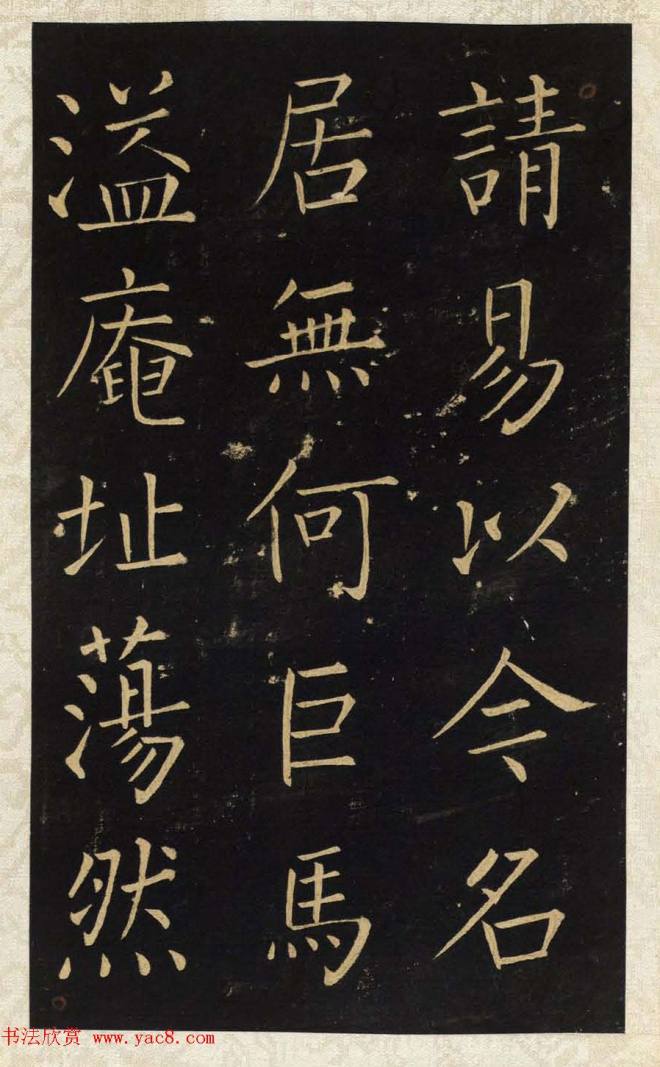 請易以今名
居無何巨馬
溢庵址蕩然
书法欣赏 www.yac8.com